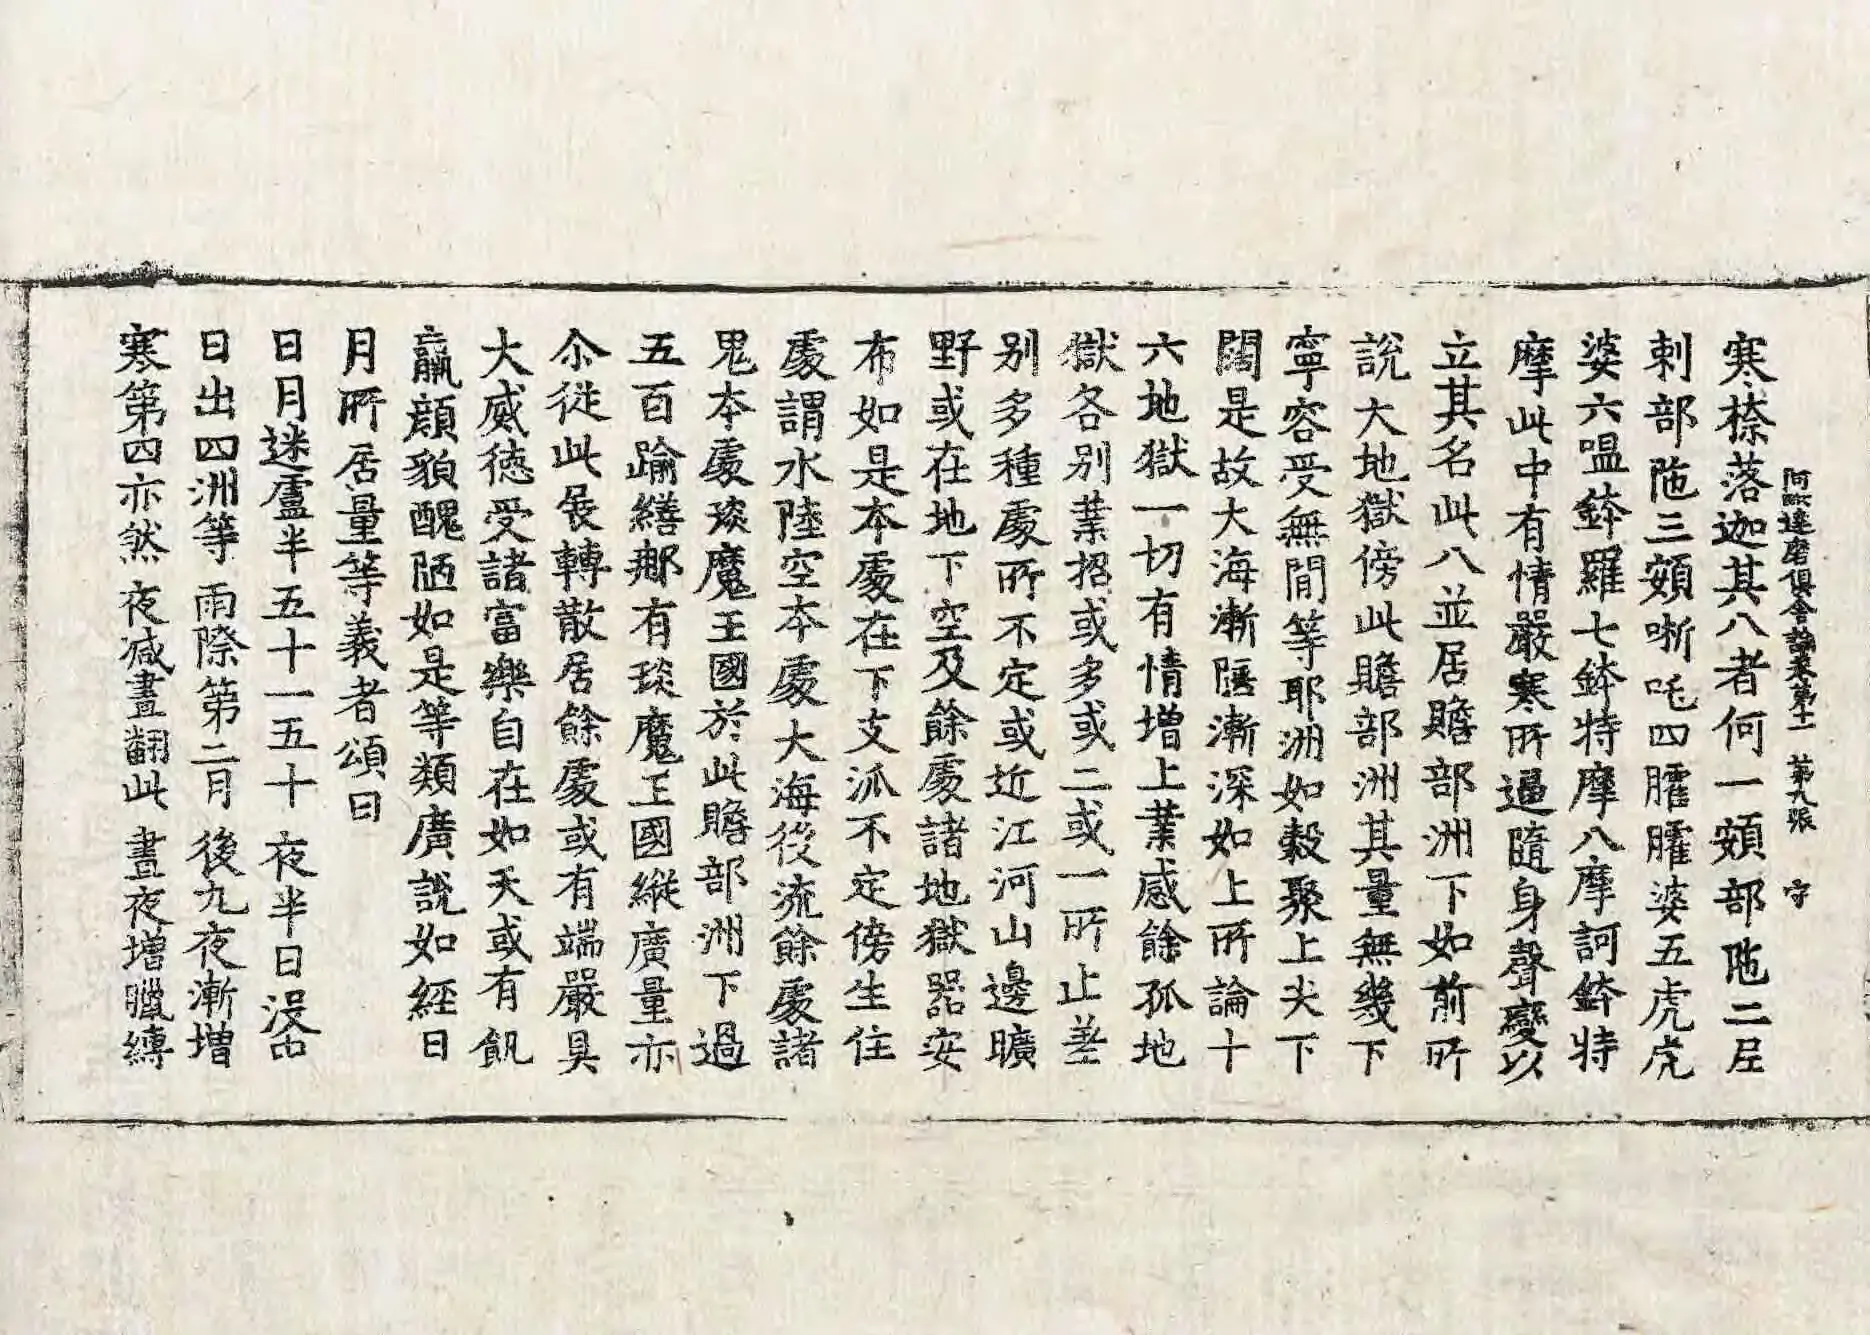 阿毗達磨俱舍論卷第十一　第九張　守
寒捺落迦其八者何一頞部陁二尼
剌部陁三頞唽吒四臛臛婆五虎虎
婆六嗢鉢羅七鉢特摩八摩訶鉢特
摩此中有情嚴寒所逼隨身聲變以
立其名此八並居贍部洲下如前所
說大地獄傍此贍部洲其量無幾下
寧容受無間等耶洲如穀聚上尖下
闊是故大海漸陿漸深如上所論十
六地獄一切有情增上業感餘孤地
獄各別業招或多或二或一所止差
別多種處所不定或近江河山邊曠
野或在地下空及餘處諸地獄器安
布如是本處在下支派不定傍生住
處謂水陸空本處大海後流餘處諸
鬼本處琰魔王國於此贍部洲下過
五百踰繕那有琰魔王國縱廣量亦
尒從此展轉散居餘處或有端嚴具
大威德受諸富樂自在如天或有飢
羸顏貌醜陋如是等類廣說如經日
月所居量等義者頌曰
日月迷盧半五十一五十　夜半日沒中
日出四洲等　雨際第二月　後九夜漸增
寒第四亦然　夜減晝翻此　晝夜增臘縛